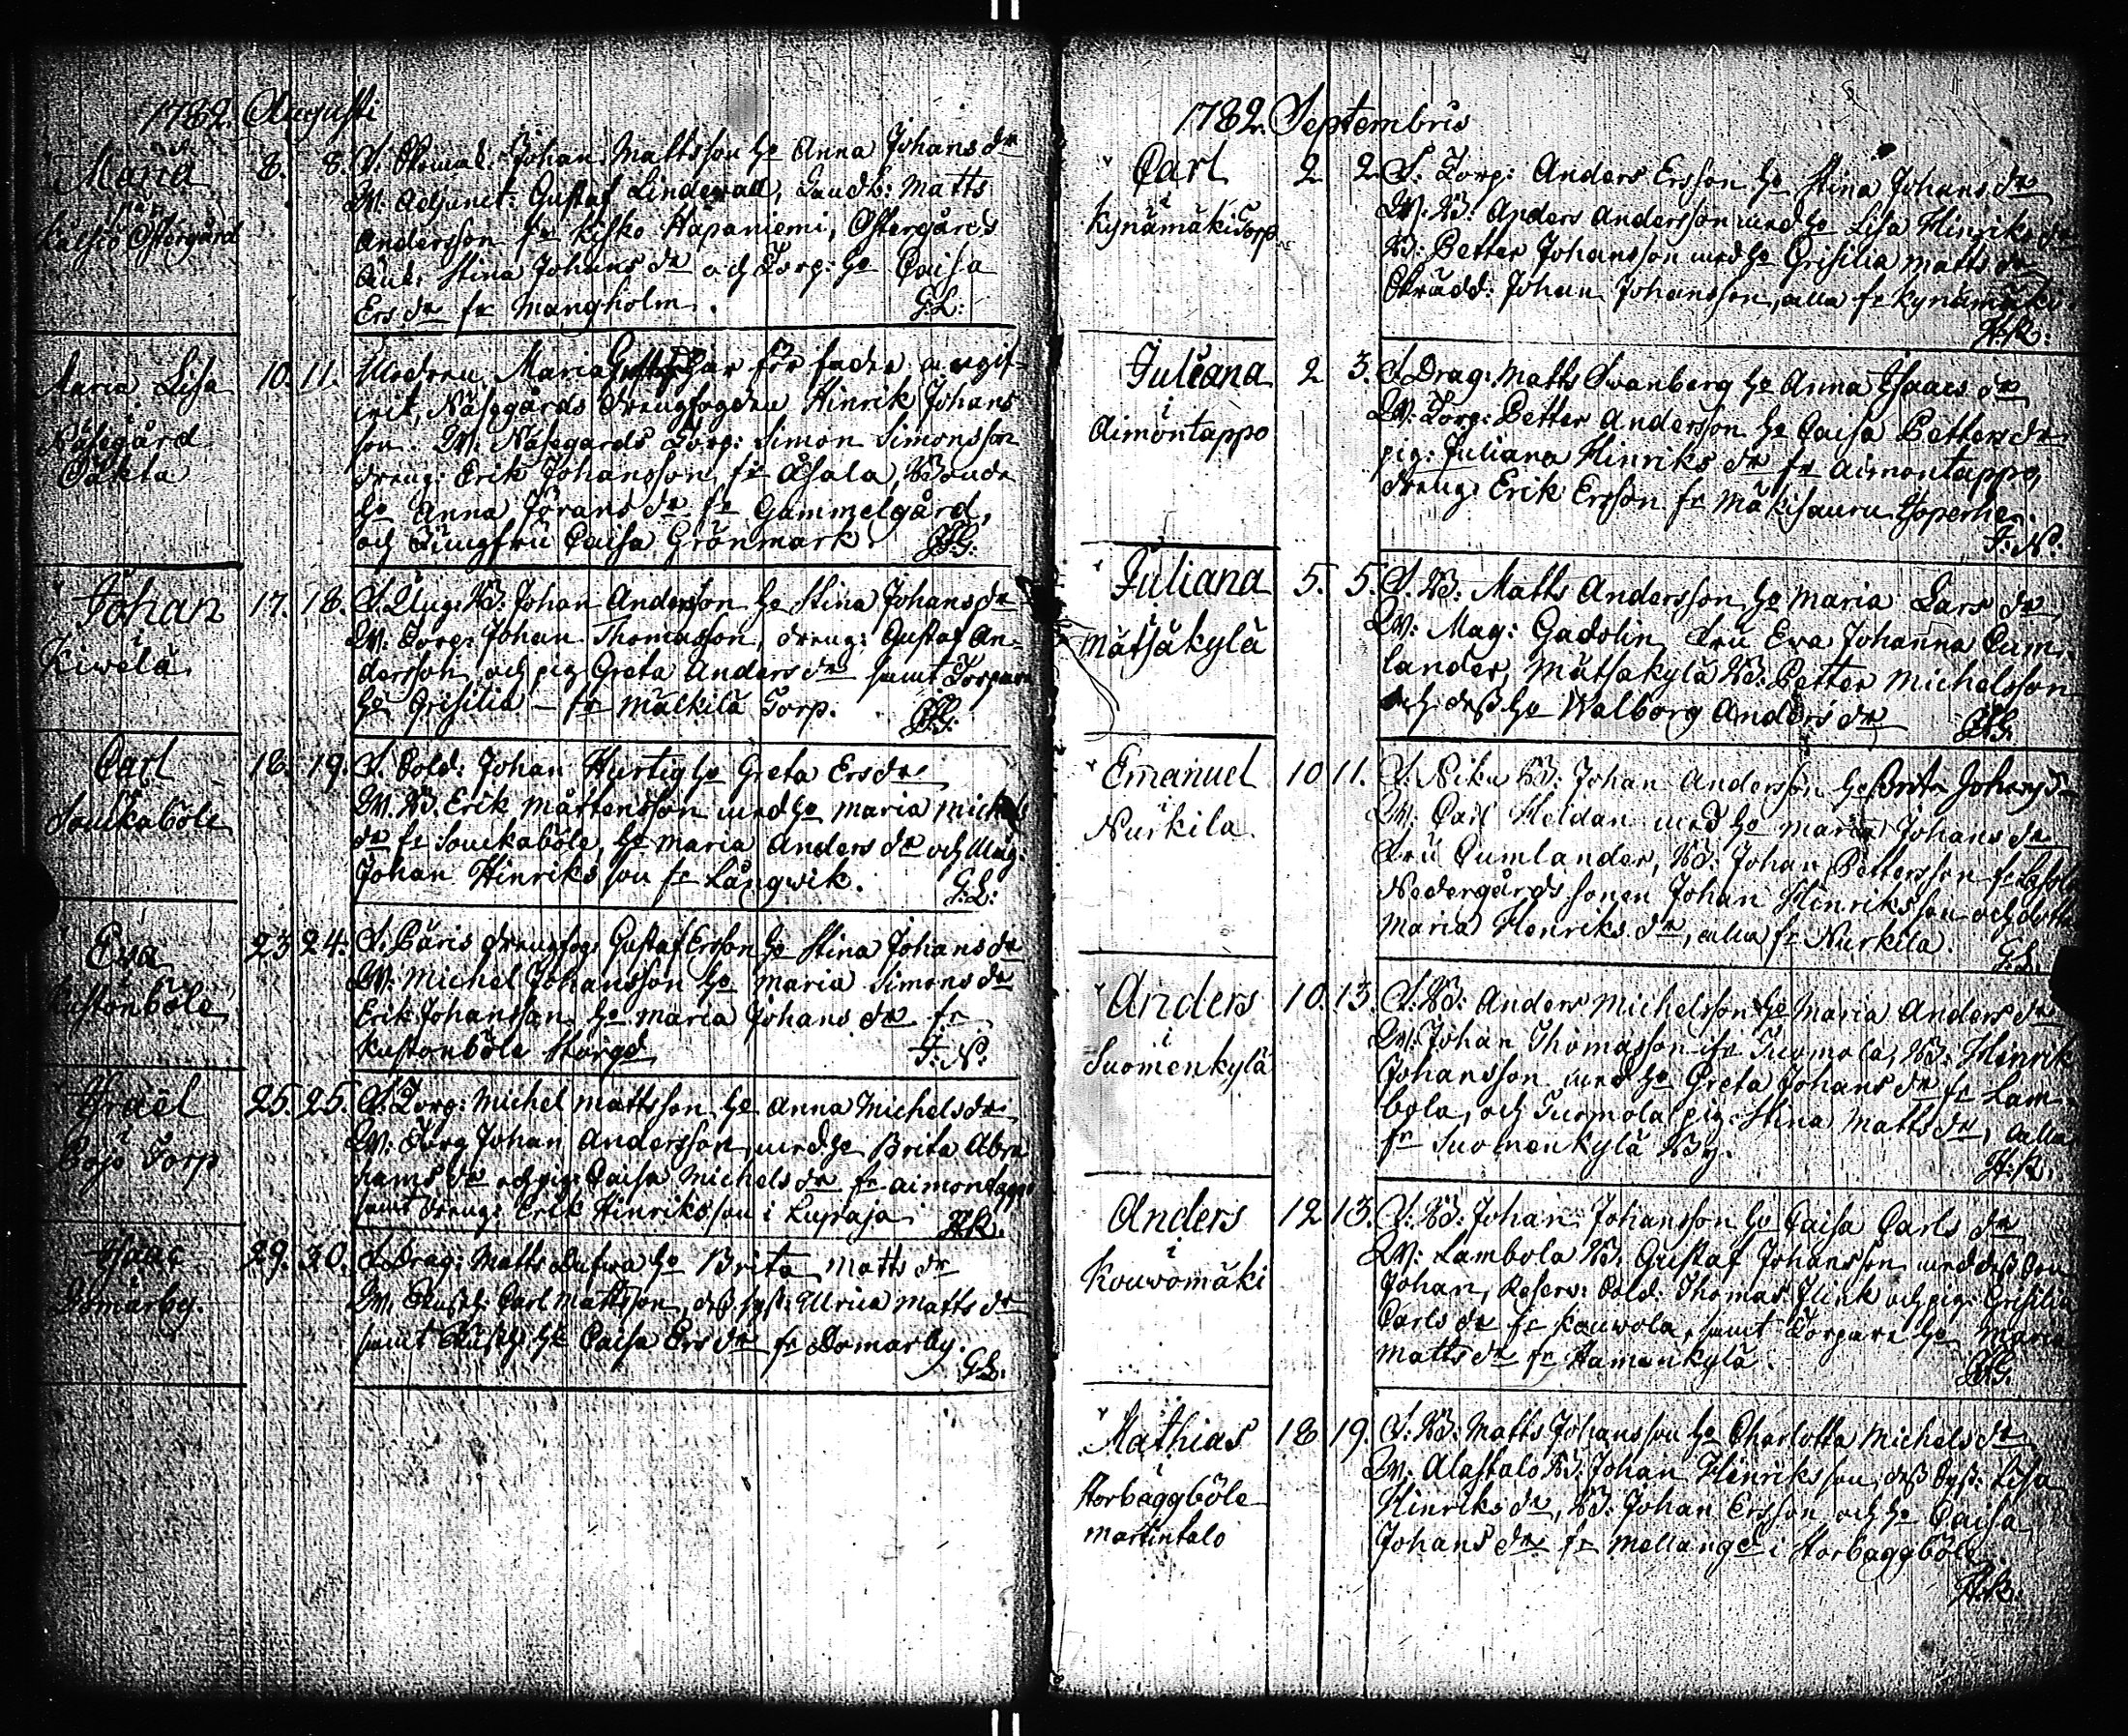 1782. Augusti
Maria
på
Östergård
8. 8. F. Johan Mattsson Hu Anna Johans dr
W. Adjunct: Gustaf Linderwall, Landb: Matts
Andersson fr Kisko Hapaniemi, Östergårds
Stina Johans dr och Torp: Hu Caisa
Ers dr fr Mangholm. G.L:
Maria Lisa
i
Näsegård
10. 11. Modren Maria har för fader angif-
wit, Näsegårds Drengfogden Hinrik Johans
son. W. Näsegards Torp: Simon Simonsson
dreng: Erik Johansson fr Åsala, Bonde
Hu Anna Jörans dr fr Gammelgård,
och Jungfru Caisa Grönmark.
Johan
i
Kiwelä
17. 18. F. Ung: B: Johan Andersson Hu Stina Johans dr
W. Torp: Johan Thomasson, dreng: Gustaf An-
dersson, och pig Greta Anders dr samt Torpare
Hu Grisilia – fr Mälkilä Torp.
Carl
i
Sonckaböle
18. 19. F. Sold: Johan Hurtig Hu Greta Ers dr
W. B. Erik Mårtensson med Hu Maria Michels
dr fr Sonckaböle, Hu Maria Anders dr och Ung:
Johan Hinriksson fr Långwik. G.L:
Eva
i
Kustonböle
23 24. F. Päris drengfog: Gustaf Ersson Hu Stina Johans dr
W. Michel Johansson Hu Maria Simons dr
Erik Johansson Hu Maria Johans dr fr
Kustonböle Storgd F. N.
Israël
i
Torp
25. 25. F. Torp: Michel Mattsson Hu Anna Michels dr
W. Torp Johan Andersson, med Hu Brita Abra
hams dr och pig: Caisa Michels dr fr Aimontappo
samt dreng: Erik Hinriksson i Lupaja H.R.
Isaac
i
Domarby.
29. 30. F. Drag: Matts Dufwa Hu Brita Matts dr
W. Carl Mattsson, dess syst: Ulrica Matts dr
samt Hu Caisa Ers dr fr Domarby.
G.L.
1782. Septembris
Carl
i
Kynämäki Torp
2 2. F. Torp: Anders Ersson Hu Stina Johans dr
W. B: Anders Andersson med Hu Lisa Hinriks dr
B: Petter Johansson med Hu Grisilia Matts dr
Skrädd: Johan Johansson, alla fr Kynämäki.
H.R:
Juleana
i
Aimontappo
2 3. F. Drag: Matts Swanberg Hu Anna Isaacs dr
W. Torp: Petter Andersson Hu Caisa Petters dr
pig: Juliana Hinriks dr fr Aimontappo,
dreng: Erik Ersson fr Mäkisauru
F. N.
Juliana
i
Mätsäkylä
5. 5. F. B. Matts Andersson, Hu Maria Lars dr
W: Mag: Gadolin, Fru Eva Johanna Cum-
lander, Mätsäkylä B: Petter Michelsson
och dess Hu Walborg Anders dr
Emanuel
i
Nurkila
10 11. F. B: Johan Andersson Hu Brita Johans dr
W. Carl Heldan med Hu Maria Johans dr
Fru Cumlander, B: Johan Pettersson fr
Nedergårds sonen Johan Hinriksson och dottr
Maria Henriks dr, alla fr Nurkila. G.L.
Anders
i
Suomenkylä
10. 13. F. B: Anders Michelsson Hu Maria Anders dr
W: Johan Thomasson fr Tuomola, B: Henrik
Johansson med Hu Greta Johans dr fr Lam-
bola, och Tuomola pig: Stina Matts dr, alla
fr Suomenkylä By. H:R:
Anders
i
Kouwomäki
12 13. F. B: Johan Johansson Hu Caisa Carls dr
W: Lambola B: Gustaf Johansson med dess Son
Johan, Reserv: Sold: Thomas Flink och pig: Grisilia
Carls dr fr Kouwola, samt Torpare Hu Maria
Matts dr fr Hamenkylä.
Mathias
i
Storbaggböle
Martintalo
18 19. F. B: Matts Johansson Hu Charlotta Michels dr
W. Alastalo B: Johan Hinriksson, dess Syst: Lisa
Hinriks dr, B: Johan Ersson och Hu Caisa
Johans dr fr Mellangd i Storbaggböle
H.R.